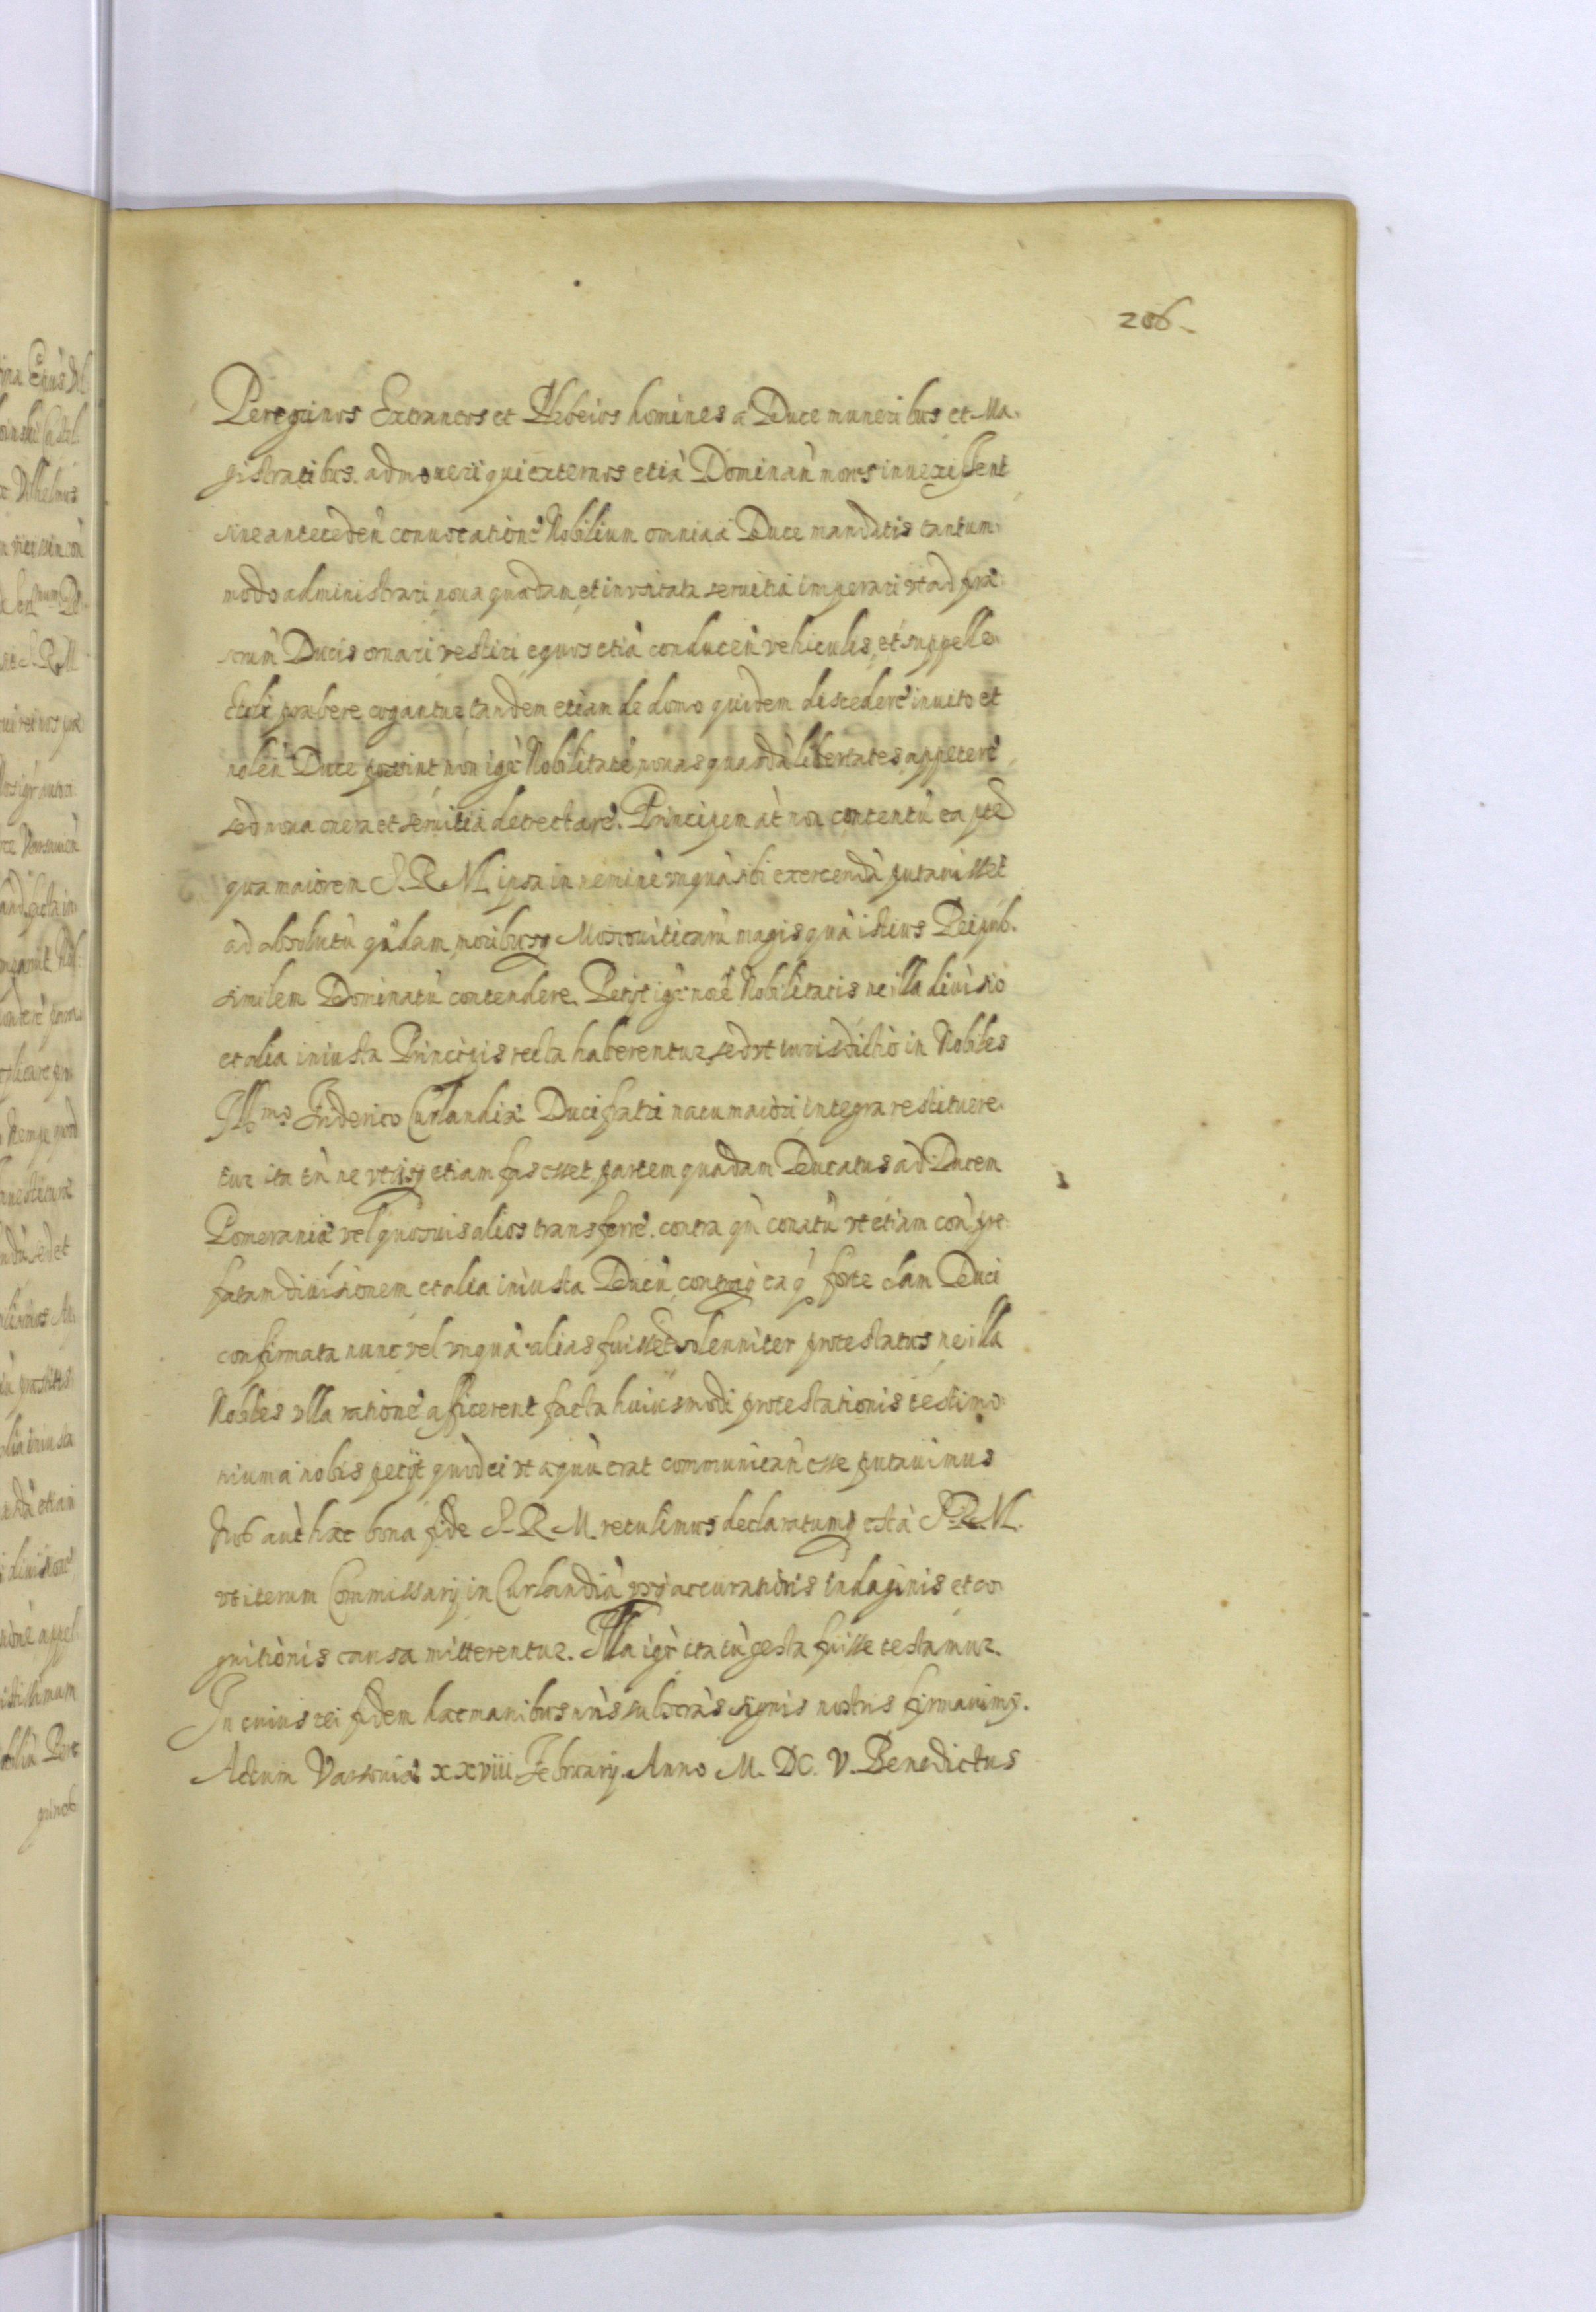 206
Peregrinos Extraneos et Plebeios homines a Duce muneribus et Ma-
gistratibus. admoueri qui externos etiã Dominañ mores inuexissent
sine anteceden̄ conuocatione Nobilium omnia a Duce mandatis tantum-
modo administrari noua quædam et inusitata seruitia imperari vt ad præ-
scrun̄ Ducis ornari vestiri equos etiã conducen̄ vehiculis, et suppelle-
ctili præbere cogantur tandem etiam de domo quidem discedere inuito et
nolen̄ Duce possint non igr̃ Nobilitatẽ nouas quasdã libertates appetere
sed noua onera et seruitia detrectare. Principem at̃ non contentũ ea ptẽ
qua maiorem S. R. M. ipsa in neminẽ vnquã sibi exercendã putauisset
ad absolutũ quẽdam moribusq Moscouiticarũ magis quã istius Reipub.
similem Dominatũ contendere. Petijt igr̃ noẽ Nobilitatis ne illa diuisio
et alia iniusta Principis recta haberentur, sed vt iurisdictio in Nobiles
Illmo Friderico Curlandiæ Duci fratri natu maiori integra restituere-
tur ita tñ ne vtrisq etiam fas esset partem quadam Ducatus ad Ducem
Pomeraniæ vel quosuis alios transferre. contra qñ conatũ vt etiam con̄ pre-
fatam diuisionem et alia iniusta Ducũ, contraq ea q̃ forte clam Duci
confirmata nunc vel vnquã alias fuissẽt solenniter protestatus ne illa
Nobiles vlla rationẽ afficerent facta huiusmodi protestationis testimo-
nium a nobis petijt quod ei vt æquũ erat communican̄ esse putauimus
Nos aut̃ hæc bona fide S. R. M. retulimus declaratumq est à S. R. M.
vt iterum Commissarij in Curlandiã accurationis indaginis et co-
gnitionis causa mitterentur. Illa igr̃ ita tũ gesta fuisse testamur.
In cuius rei fidem hæc manibus nris subscràs signis nostris firmauimq.
Actum Varsouiæ xxviii Februarij. Anno M. DC. V. Benedictus